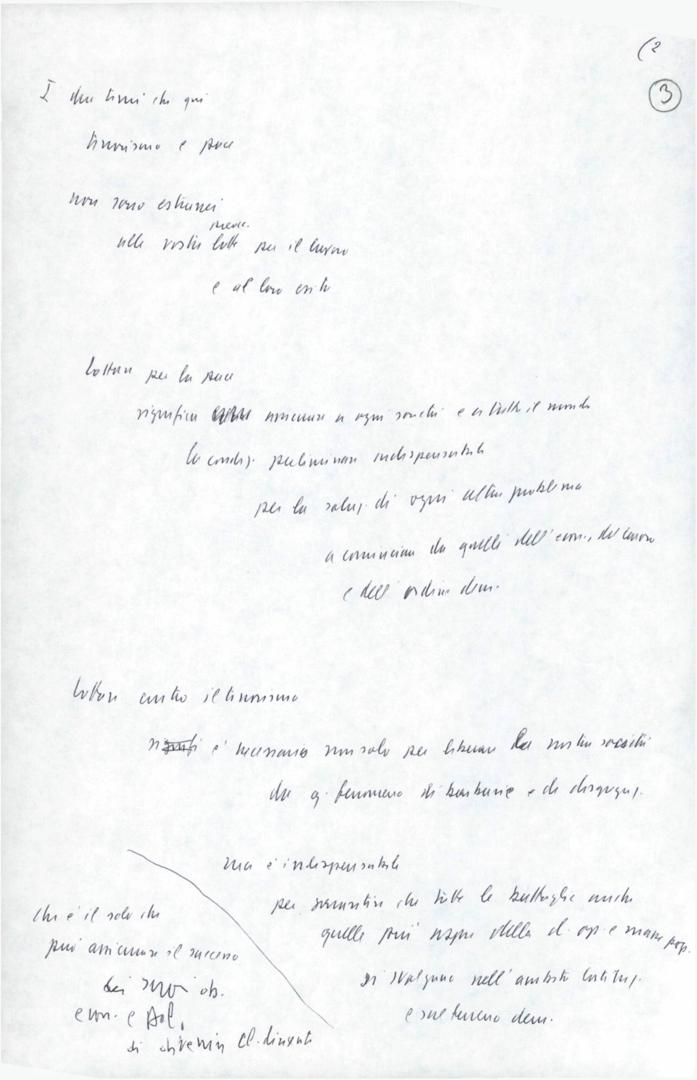 (2
3
I due temi che qui
terrorismo e pace
non sono estranei
alle vostre lotte per il lavoro
e al loro esito
Lottare per la pace
significa assicurare a ogni società e a tutto il mondo
la condiz. preliminare indispensabile
per la soluz. di ogni altro problema
a cominciare da quelli dell'econ., del lavoro
e dell'ordine dem.
Lottare contro il terrorismo
è necessario non solo per liberare la nostra società
da q. fenomeno di barbarie e di disgregaz.
ma è indispensabile
per garantire che tutte le battaglie anche
quelle più aspre della cl. op. e masse pop.
si svolgano nell'ambito costituz.
e sul terreno dem.
che è il solo che
può assicurare il successo
dei suoi ob.
econ. e pol.
di divenire cl. dirigente